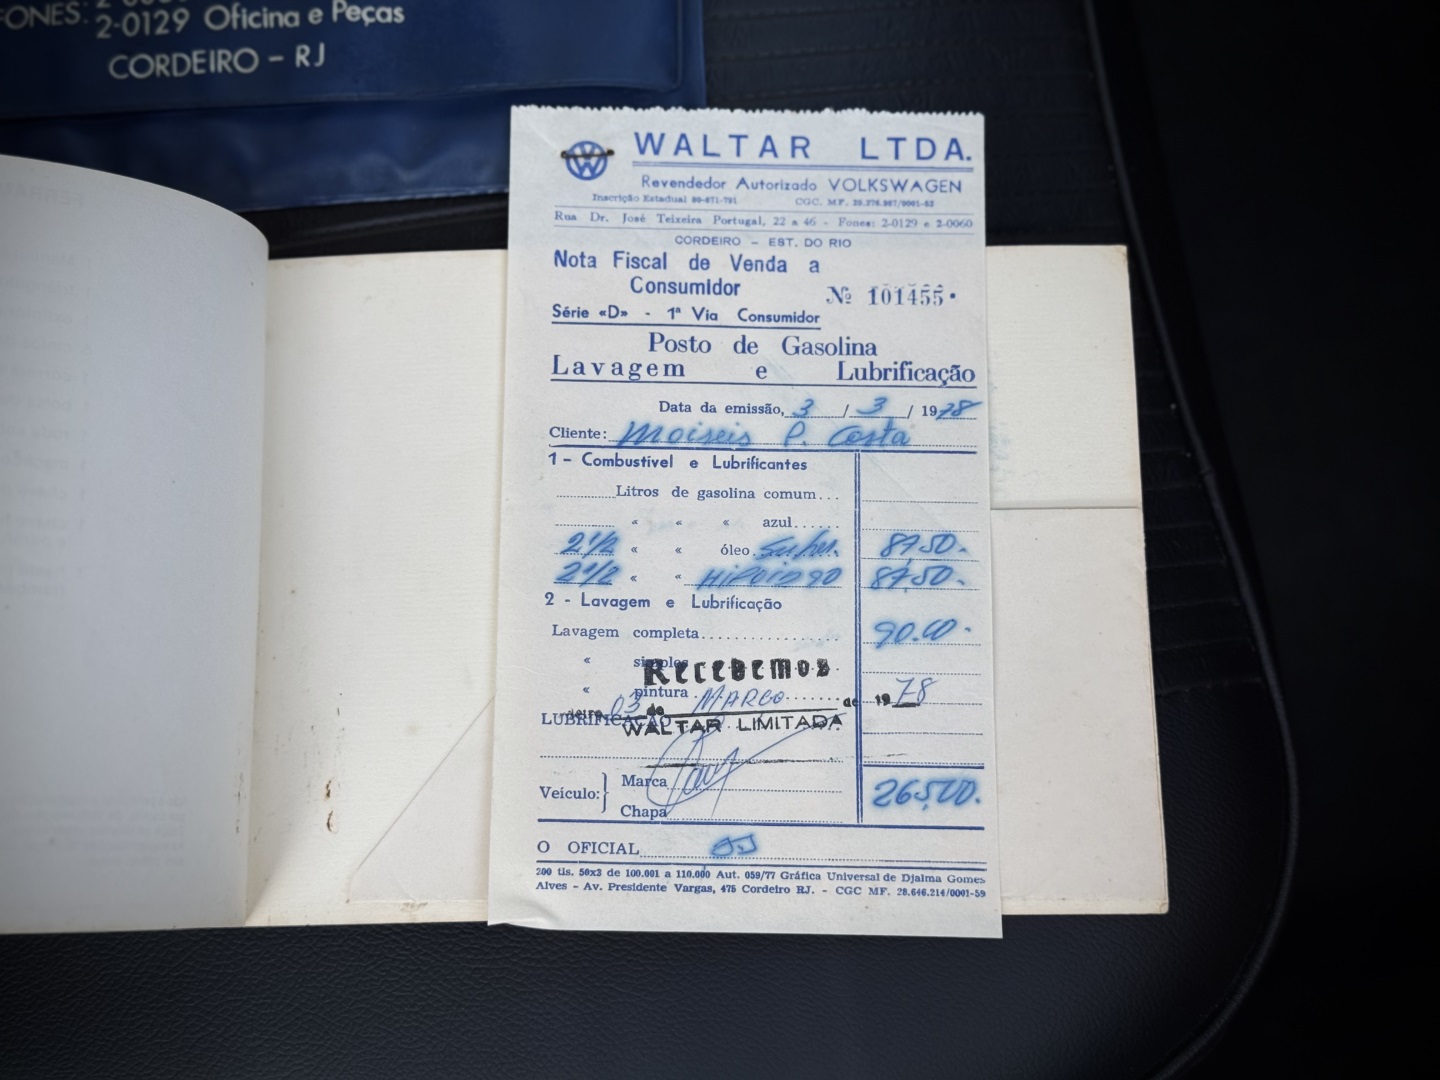 FONES: 2-
2-0129 Oficina e Peças
CORDEIRO - RJ
WALTAR LTDA.
Revendedor Autorizado VOLKSWAGEN
Inscrição Estadual 80-671-791 CGC. MF. 28.276.987/0001-53
Rua Dr. José Teixeira Portugal, 22 a 46 - Fones: 2-0129 e 2-0060
CORDEIRO - EST. DO RIO
Nota Fiscal de Venda a
Consumidor
Nº 101455
Série «D» - 1ª Via Consumidor
Posto de Gasolina
Lavagem e Lubrificação
Data da emissão, 3 / 3 / 1978
Cliente: Moiseis P. Costa
1 - Combustível e Lubrificantes
Litros de gasolina comum...
« « « azul......
2 1/2 « « óleo 87,50.
2 1/2 « « HIPOID 90 87,50.
2 - Lavagem e Lubrificação
Lavagem completa................ 90.00.
« simples
Recebemos
« pintura
deiro 03 de MARÇO de 1978
LUBRIFICAÇÃO
WALTAR LIMITADA
Veículo: Marca
Chapa
265,00.
O OFICIAL
200 tls. 50x3 de 100.001 a 110.000 Aut. 059/77 Gráfica Universal de Djalma Gomes
Alves - Av. Presidente Vargas, 475 Cordeiro RJ. - CGC MF. 28.646.214/0001-59